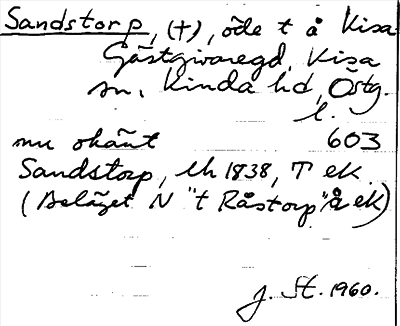 Sandstorp, (†), öde t å Kisa
Gästgivaregd, Kisa
sn, Kinda hd, Östg.
l.
nu okänt 603
Sandstorp, lh 1838, T ek
(Beläget N "t Råstorp" å ek)
J. St. 1960.